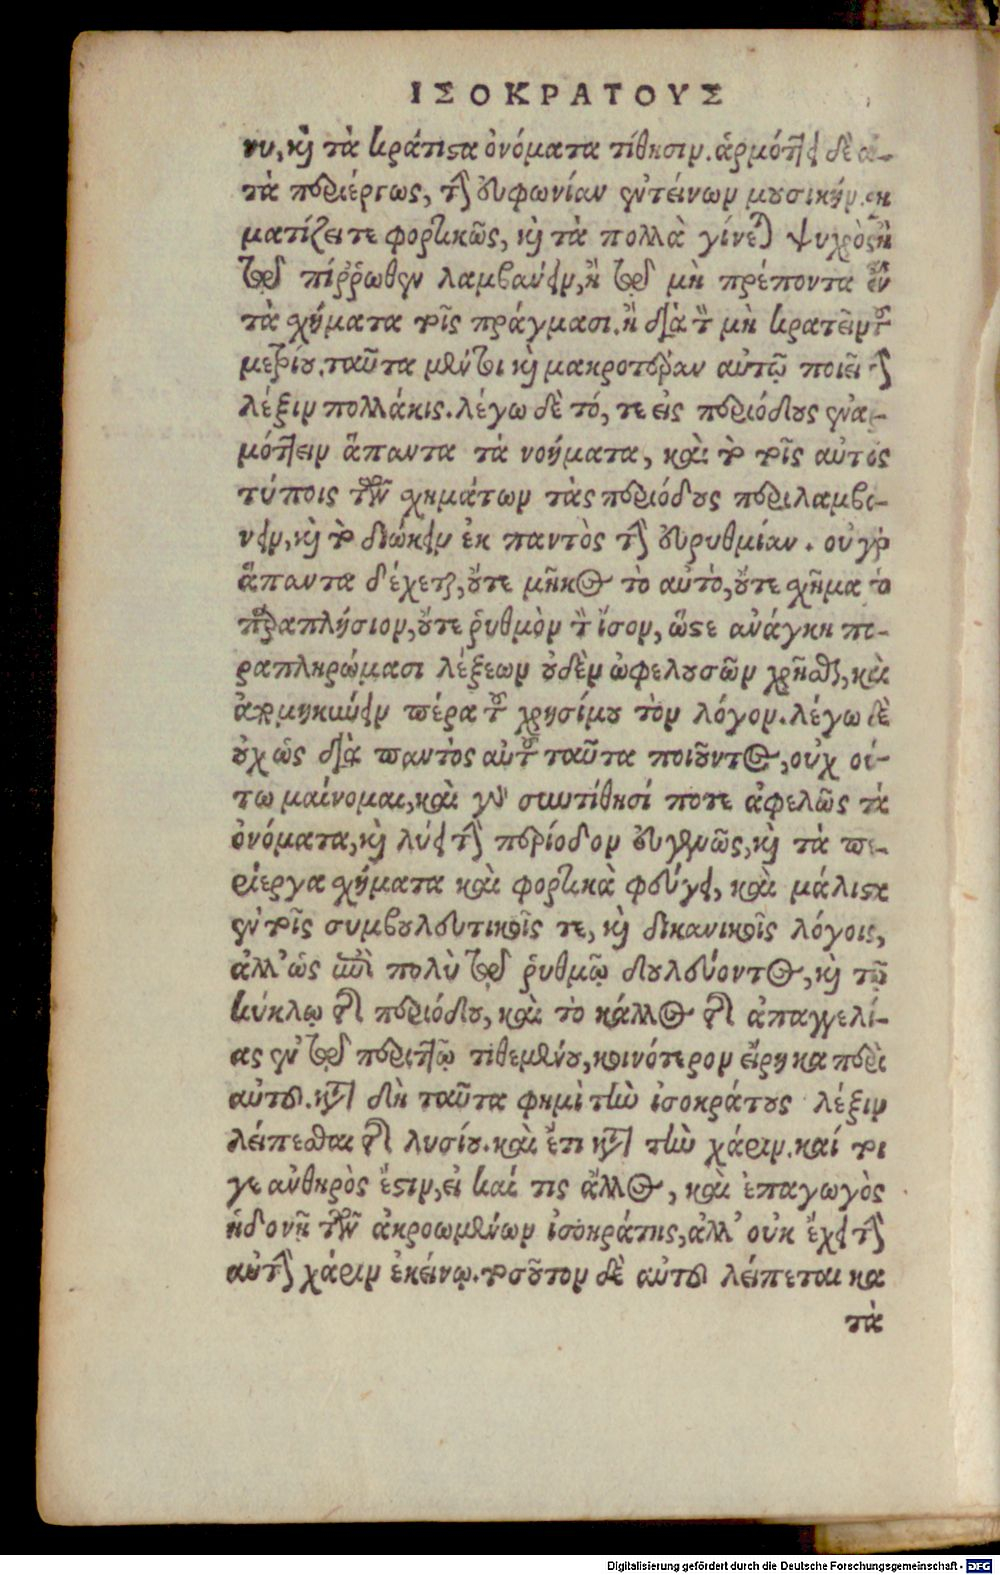 ΙΣΟΚΡΑΤΟΥΣ
νυ, καὶ τὰ κράτιστα ὀνόματα τίθησιν. ἁρμόττει δὲ αὐ-
τὰ περιέργως, τὴν εὐφωνίαν ἐντείνων μουσικήν. σχη
ματίζει τε φορτικῶς, καὶ τὰ πολλὰ γίνεται ψυχρὸς ἢ
τῷ πόῤῥωθεν λαμβάνειν, ἢ τῷ μὴ πρέποντα εἶν
τὰ σχήματα τοῖς πράγμασι. ἢ διὰ τὸ μὴ κρατεῖν τοῦ
μετρίου. ταῦτα μέντοι καὶ μακροτέραν αὐτῷ ποιεῖ τὴν
λέξιν πολλάκις. λέγω δὲ τό, τε εἰς περιόδους ἐναρ-
μόττειν ἅπαντα τὰ νοήματα, καὶ τὸ τοῖς αὐτοῖς
τύποις τῶν σχημάτων τὰς περιόδους περιλαμβά-
νειν, καὶ τὸ διώκειν ἐκ παντὸς τὴν εὐρυθμίαν. οὐ γὰρ
ἅπαντα δέχεται, οὔτε μῆκος τὸ αὐτὸ, οὔτε σχῆμα τὸ
παραπλήσιον, οὔτε ῥυθμὸν τὸν ἴσον, ὥστε ἀνάγκη πα-
ραπληρώμασι λέξεων οὐδὲν ὠφελουσῶν χρῆσθαι, καὶ
ἀπομηκύνειν πέρα τοῦ χρησίμου τὸν λόγον. λέγω δὲ
οὐχ ὡς διὰ παντὸς αὐτοῦ ταῦτα ποιοῦντος, οὐχ οὕ-
τω μαίνομαι, καὶ γὰρ συντίθησί ποτε ἀφελῶς τὰ
ὀνόματα, καὶ λύει τὴν περίοδον εὐγενῶς, καὶ τὰ πε-
ρίεργα σχήματα καὶ φορτικὰ φεύγει, καὶ μάλιστα
ἐν τοῖς συμβουλευτικοῖς τε, καὶ δικανικοῖς λόγοις,
ἀλλ' ὡς ἐπὶ πολὺ τῷ ῥυθμῷ δουλεύοντος, καὶ τῷ
κύκλῳ τῆς περιόδου, καὶ τὸ κάλλος τῆς ἀπαγγελί-
ας ἐν τῷ περιττῷ τιθεμένου, κοινότερον εἴρηκα περὶ
αὐτοῦ. κατὰ δὴ ταῦτα φημὶ τὴν ἰσοκράτους λέξιν
λείπεσθαι τῆς λυσίου. καὶ ἔτι κατὰ τὴν χάριν. καί τοι
γε ἀνθηρὸς ἔστιν, εἰ καί τις ἄλλος, καὶ ἐπαγωγὸς
ἡδονῇ τῶν ἀκροωμένων ἰσοκράτης, ἀλλ' οὐκ ἔχει τὴν
αὐτὴν χάριν ἐκείνῳ. τοσοῦτον δὲ αὐτοῦ λείπεται κα
τὰ
Digitalisierung gefördert durch die Deutsche Forschungsgemeinschaft - DFG